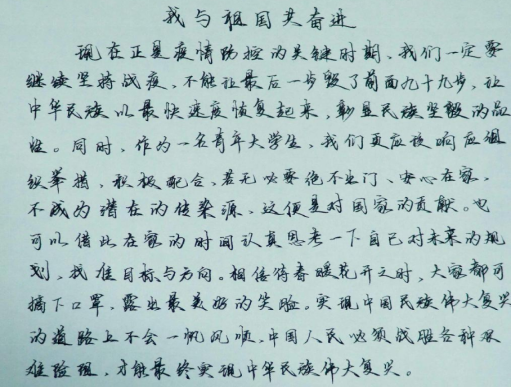 我与祖国共奋进
现在正是疫情防控的关键时期，我们一定要
继续坚持战疫，不能让最后一步毁了前面九十九步，让
中华民族以最快速度恢复起来，彰显民族坚毅的品
性。同时，作为一名青年大学生，我们更应该响应组
织举措，积极配合，若无必要绝不出门、安心在家，
不成为潜在的传染源，这便是对国家的贡献。也
可以借此在家的时间认真思考一下自己对未来的规
划，找准目标与方向。相信待春暖花开之时，大家都可
摘下口罩，露出最美好的笑脸。实现中国民族伟大复兴
的道路上不会一帆风顺，中国人民必须战胜各种艰
难险阻，才能最终实现中华民族伟大复兴。